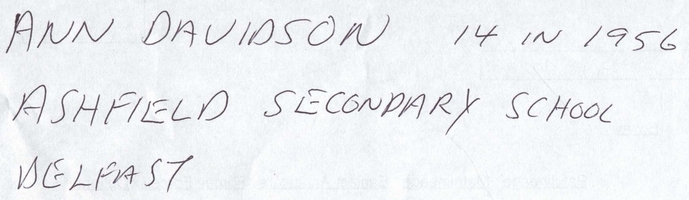 ANN DAVIDSON 14 IN 1956
ASHFIELD SECONDARY SCHOOL
BELFAST